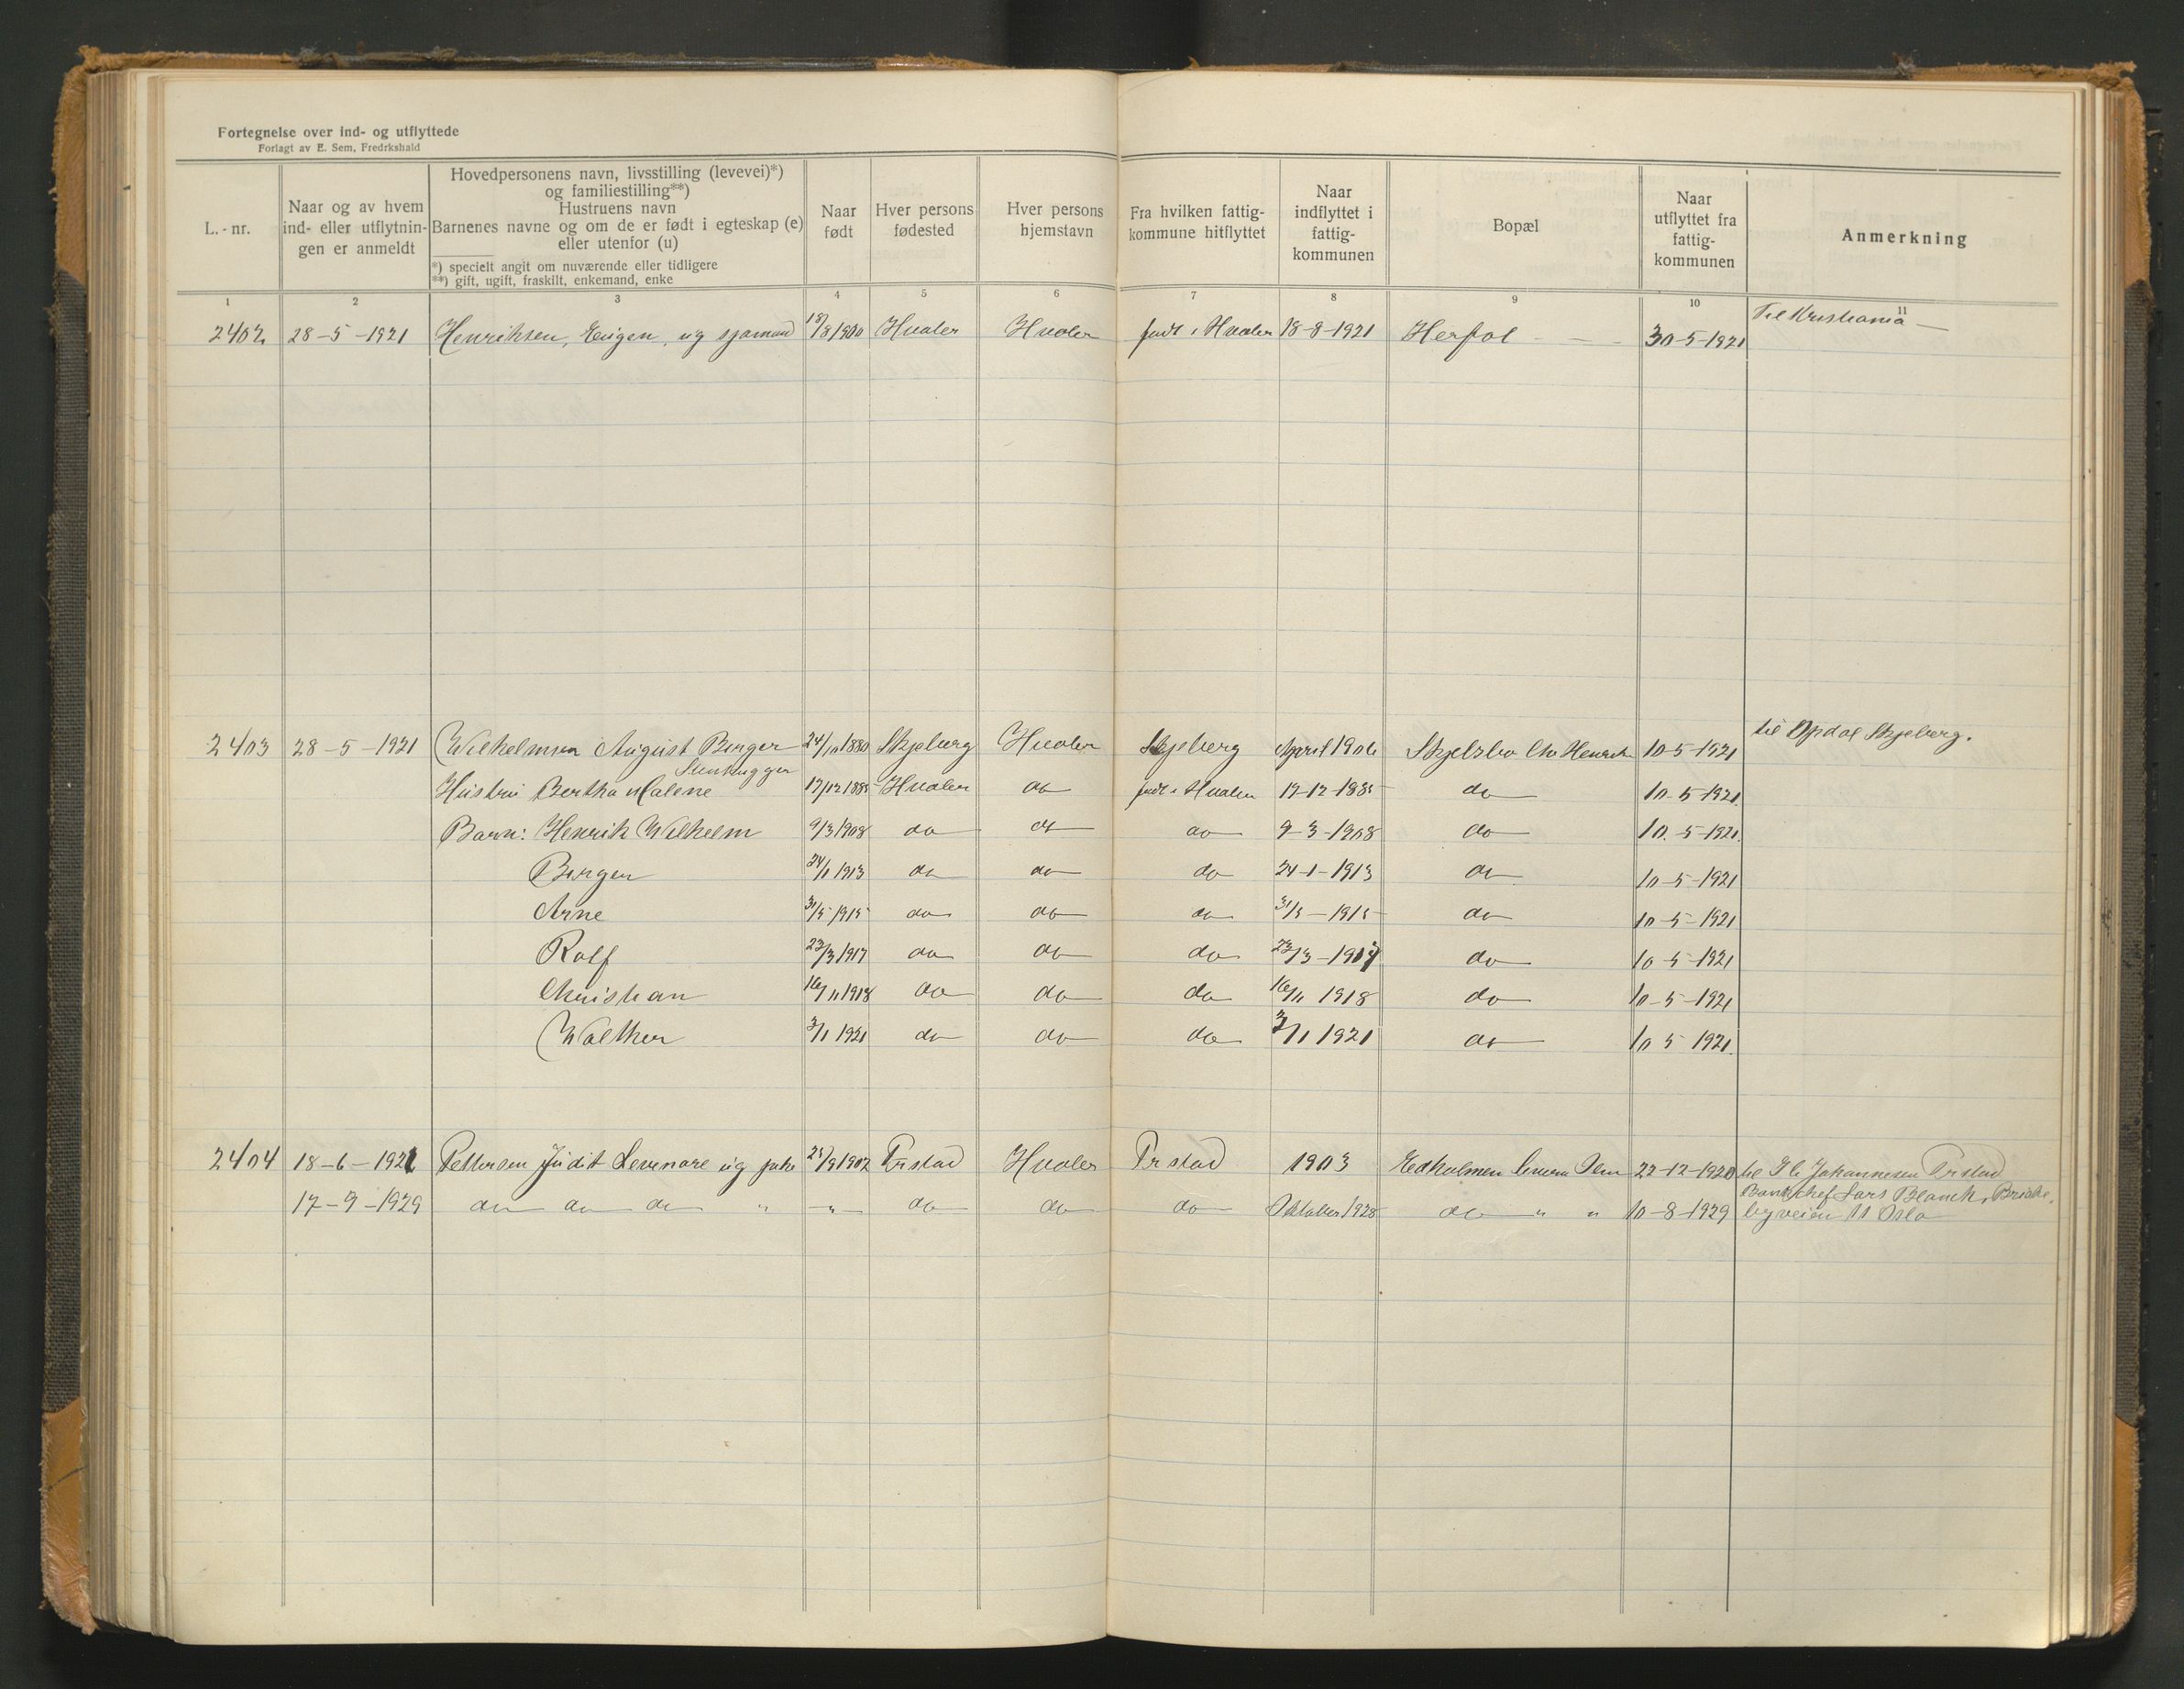 Fortegnelse over ind- og utflyttede
Forlagt av E. Sem, Fredrkshald
L. - nr.
Naar og av hvem ind- eller utflytnin- gen er anmeldt
Hovedpersonens navn, livsstilling (levevei)*)
og familiestilling**)
Hustruens navn
Barnenes navne og om de er født i egteskap (e)
eller utenfor (u)
*) specielt angit om nuværende eller tidligere
**) gift, ugift, fraskilt, enkemand, enke
Naar født
Hver persons fødested
Hver persons hjemstavn
Fra hvilken fattig- kommune hitflyttet
Naar indflyttet i fattig- kommunen
Bopæl
Naar utflyttet fra fattig- kommunen
Anmerkning
1 2 3 4 5 6 7 8 9 10 11
2402 28-5-1921 Henriksen, Eugen, ug sjømand 18/8 1900 Hvaler Hvaler født i Hvaler 18-8-1921 Herføl 30-5-1921 Til Kristiania
2403 28-5-1921 Wilhelmsen August Birger 24/10 1880 Skjeberg Hvaler Skjeberg April 1906 Skjelsbo Chr Henrik 10-5-1921 til Opdal Skjeberg.
Stenhugger
Hustru Bertha Malene 17/12 1885 Hvaler do født i Hvaler 17-12-1885 do 10-5-1921
Barn: Henrik Wilhelm 9/3 1908 do do do 9-3-1908 do 10.-5-1921.
Birger 24/1 1913 do do do 24-1-1913 do 10-5-1921
Arne 31/5 1915 do do do 31/5-1915 do 10-5-1921
Rolf 23/3 1917 do do do 23/3-1917 do 10-5-1921
Christian 16/11 1918 do do do 16/11 1918 do 10-5-1921
Walther 3/1 1921 do do do 3/1 1921 do 10 5 1921.
2404 18-6-1921 Pettersen Judit Levinare ug 25/9 1902 Prstad Hvaler Prstad 1903 Edholmen 22-12-1920 til Johannesen Prstad
17-9-1929 do do do " - " - do do do Oktober 1928 do " " 10-8-1929 Bankchef Lars Blanck,
byveien 11 Oslo